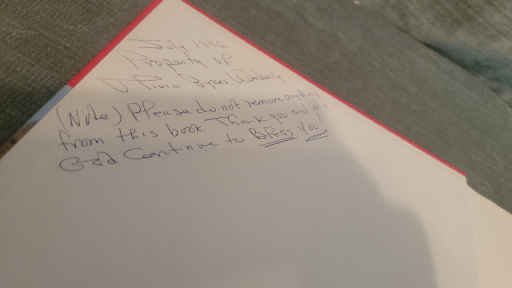 July
Property of
(Note) Please do not remove
from this book. Thank you and
God Continue to Bless You